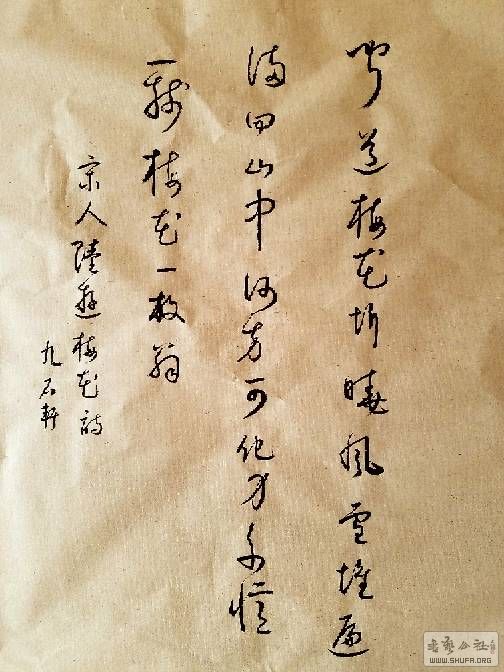 聞道梅花坼曉風雪堆遍
滿四山中何方可化身千億
一樹梅花一放翁
宋人陸遊梅花詩
九石軒
书艺公社
WWW.SHUFA.ORG